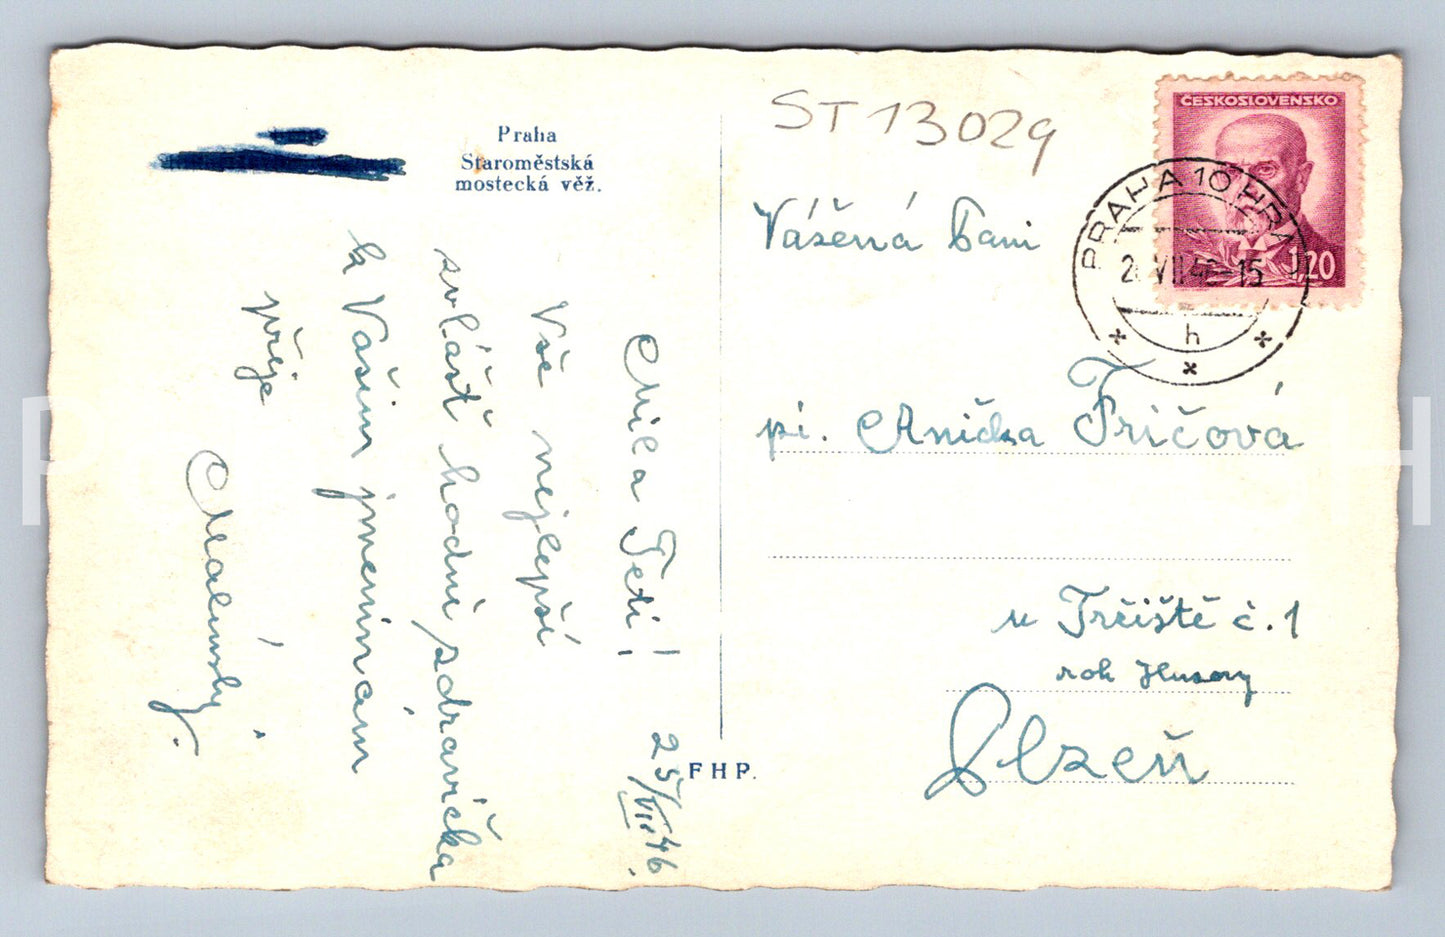 Praha
Staroměstská
mostecká věž.
ST 13029
ČESKOSLOVENSKO
1,20
PRAHA 10 HR
VII 46-15
h
Vážená Paní
pí. Anička Fričová
u Tržiště č. 1
roh Husovy
Plzeň
FHP.
25/VII 46.
Milá Teti!
Vše nejlepší
zvlášť hodně zdravíčka
k Vašim jmeninám
přeje